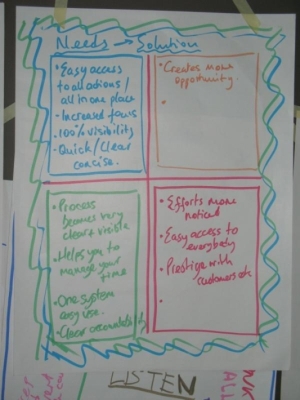 Needs → Solution
• Easy access
to all actions /
all in one place
• Increased focus
• 100% visibility
• Quick/Clear
concise.
• Creates more
opportunity.
•
• Process
becomes very
clear & visible
• Helps you to
manage your
time
• One system
easy use.
• Clear accountability
• Efforts more
noticed
• Easy access to
everybody
• Prestige with
customers etc
•
LISTEN